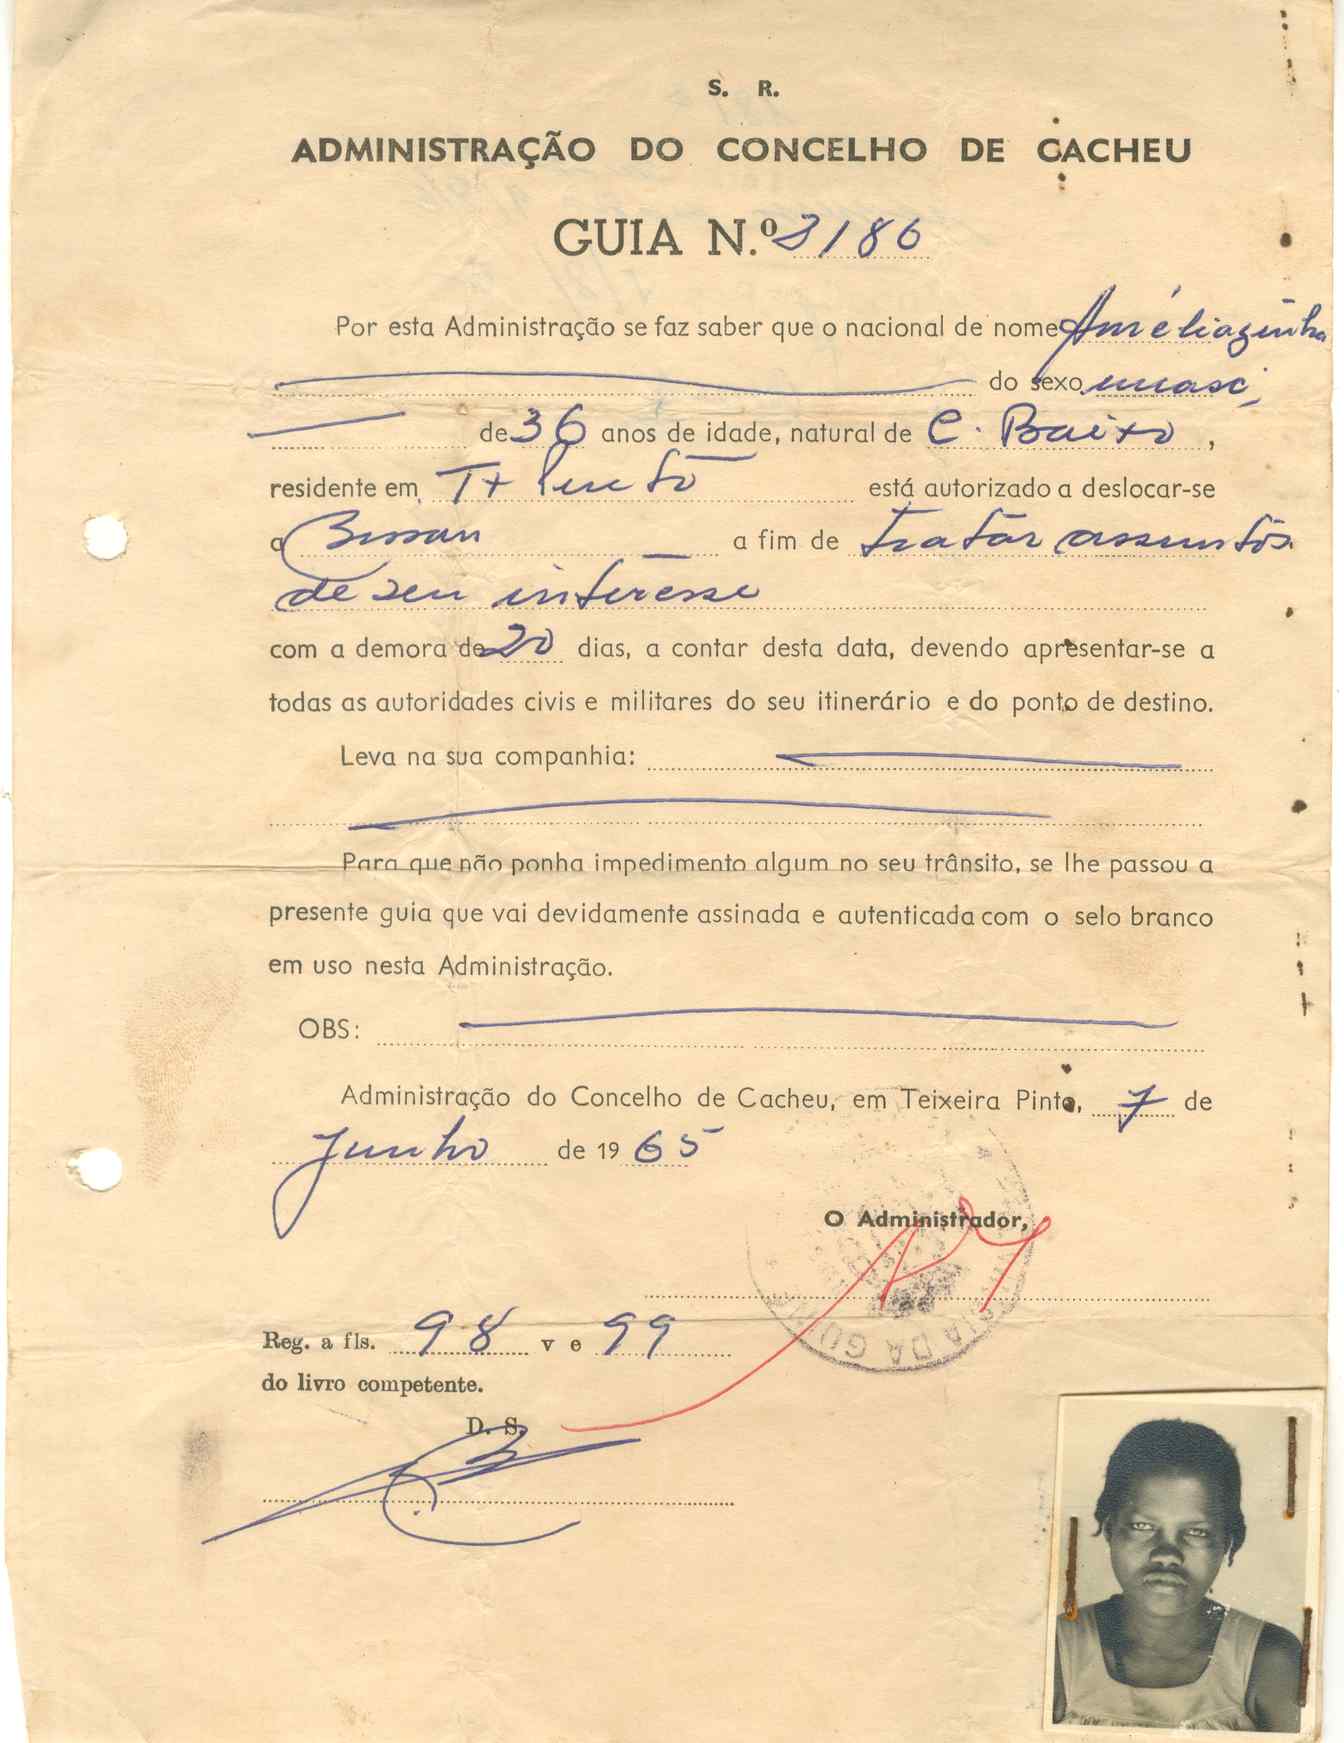 S. R.
ADMINISTRAÇÃO DO CONCELHO DE CACHEU
GUIA N.º 3186
Por esta Administração se faz saber que o nacional de nome Améliazinha
do sexo masc.
de 36 anos de idade, natural de C. Baixo,
residente em Tx Pinto está autorizado a deslocar-se
a Bissau a fim de tratar assuntos
de seu interesse
com a demora de 20 dias, a contar desta data, devendo apresentar-se a
todas as autoridades civis e militares do seu itinerário e do ponto de destino.
Leva na sua companhia:
Para que não ponha impedimento algum no seu trânsito, se lhe passou a
presente guia que vai devidamente assinada e autenticada com o selo branco
em uso nesta Administração.
OBS:
Administração do Concelho de Cacheu, em Teixeira Pinto, 7 de
Junho de 1965
O Administrador,
DA GUINÉ
Reg. a fls. 98 v e 99
do livro competente.
D. S.